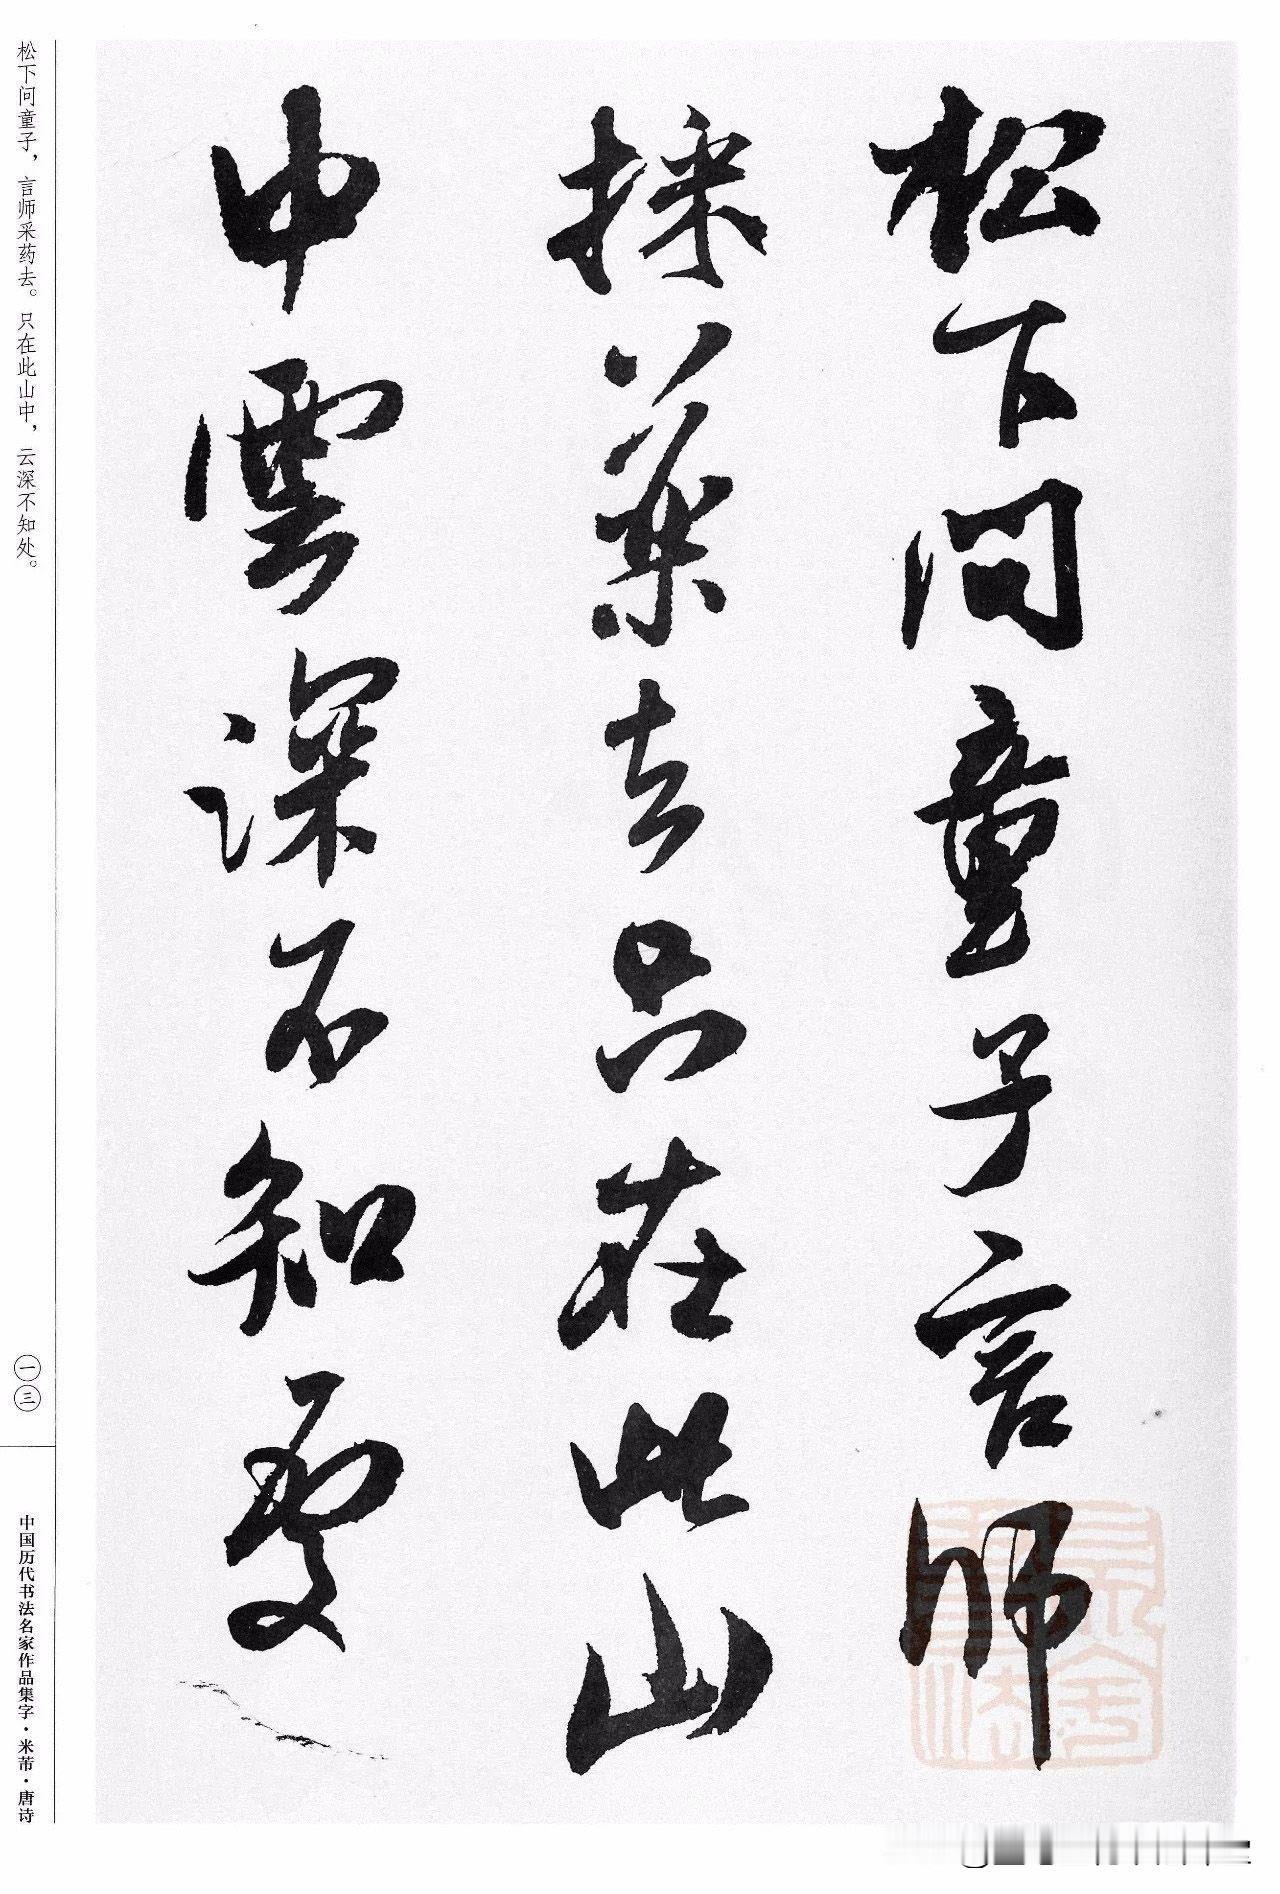 松下问童子言师
採藥去只在此山
中雲深不知處
松下问童子，言师采药去。只在此山中，云深不知处。
一三
中国历代书法名家作品集字·米芾·唐诗